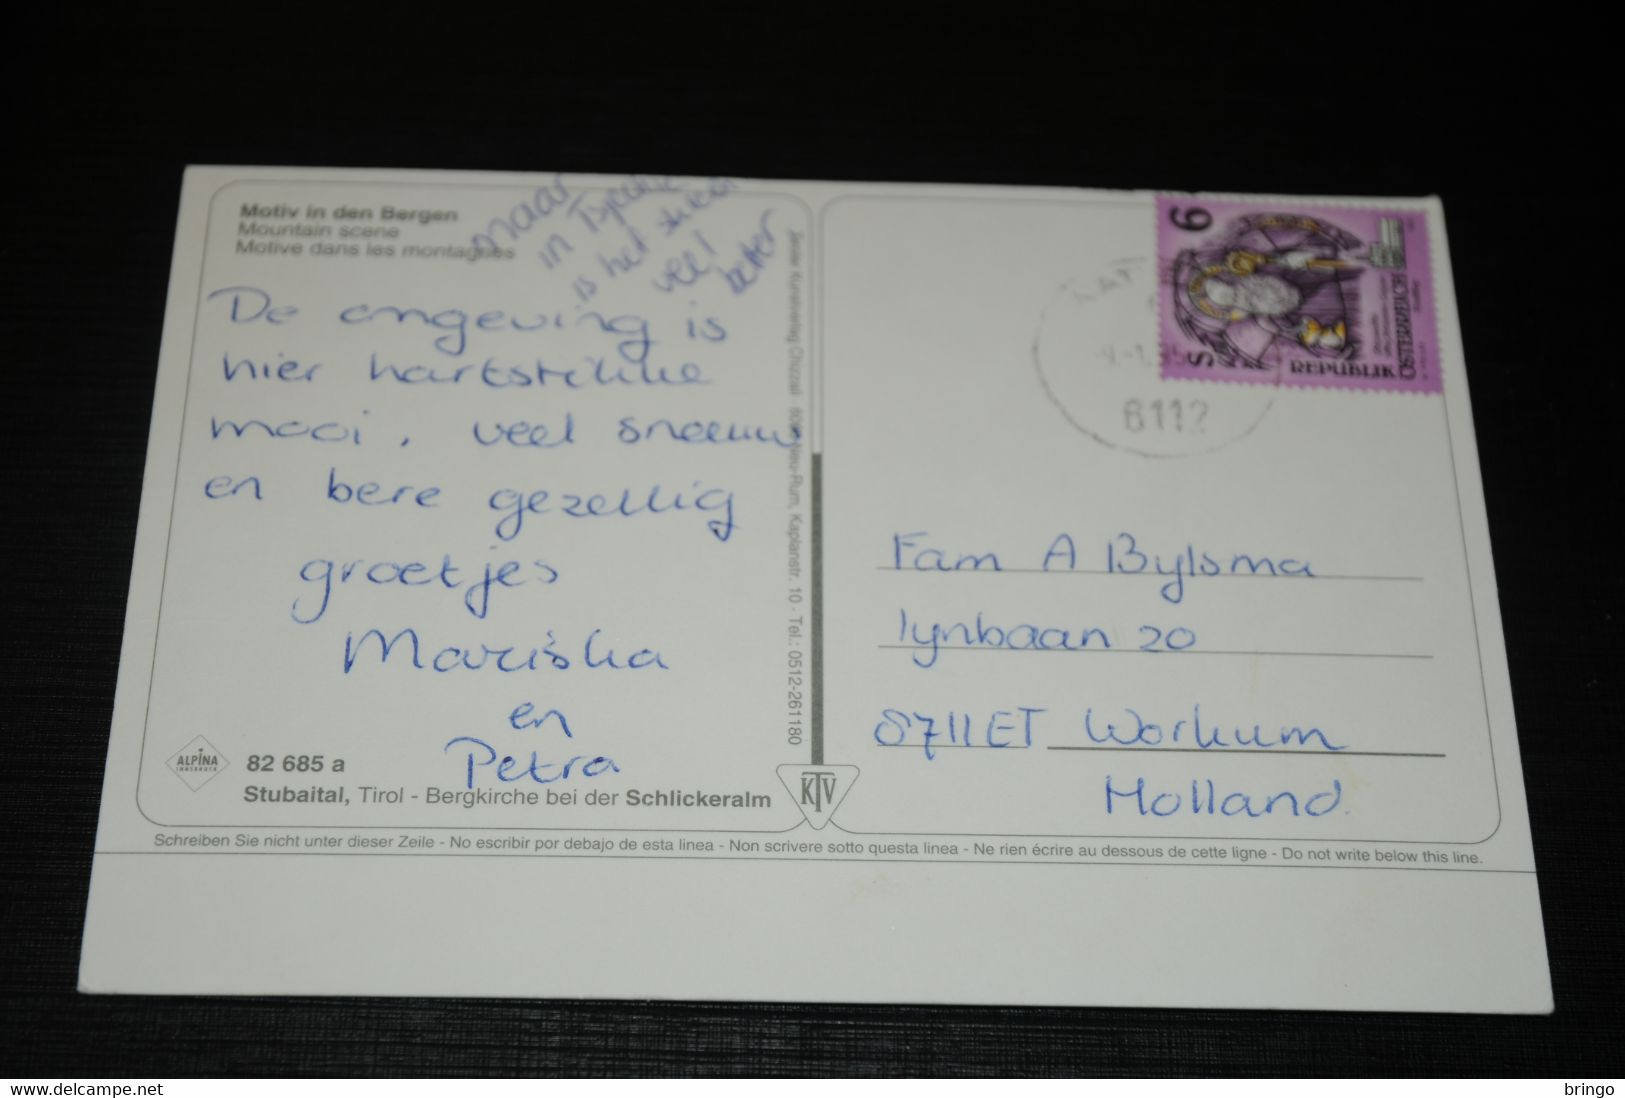 Motiv in den Bergen
Mountain scene
Motive dans les montagnes
maar
in
is het
veel
beter
De omgeving is
hier hartstikke
mooi. veel sneeuw
en bere gezellig
groetjes
Mariska
en
Petra
ALPINA
INNSBRUCK
82 685 a
Stubaital, Tirol - Bergkirche bei der Schlickeralm
Neu-Rum, Kaplanstr. 10 - Tel.: 0512-261180
KTV
6
S
REPUBLIK
ÖSTERREICH
6112
Fam A Bylsma
lynbaan 20
8711ET Workum
Holland.
Schreiben Sie nicht unter dieser Zeile - No escribir por debajo de esta linea - Non scrivere sotto questa linea - Ne rien écrire au dessous de cette ligne - Do not write below this line.
www.delcampe.net
bringo